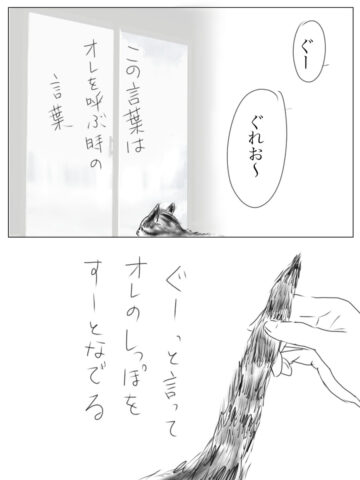 ぐー
ぐれお～
この言葉は
オレを呼ぶ時の
言葉
ぐーっと言って
オレのしっぽを
すーとなでる